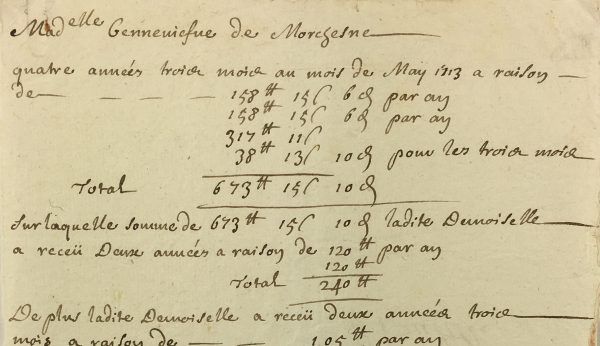 Madelle Genneviefue de Morchesne
quatre années trois mois au mois de May 1713 a raison
de — — — — 158tt 15s 6d par an
158tt 15s 6d par an
317tt 11s
38tt 13s 10d pour les trois mois
Total 673tt 15s 10d
Sur laquelle somme de 673tt 15s 10d ladite Demoiselle
a receü Deux années a raison de 120tt par an
120tt
Total 240tt
De plus ladite Demoiselle a receü deux années trois
mois a raison de — — 105tt par an